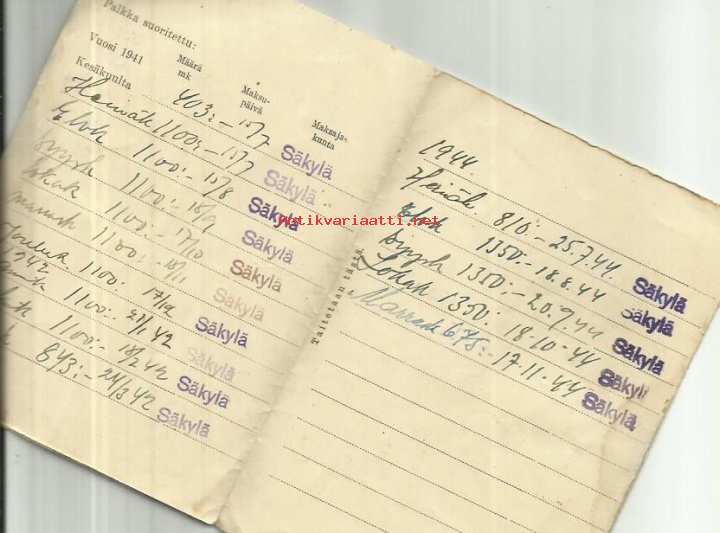 Palkka suoritettu:
Vuosi 1941
Määrä mk
Maksupäivä
Maksajakunta
Kesäkuulta 403:- 15/7 Säkylä
Heinäk 1100:- 15/7 Säkylä
Elok 1100:- 15/8 Säkylä
Syysk 1100:- 15/9 Säkylä
Lokak 1100:- 17/10 Säkylä
Marrask 1100:- Säkylä
Jouluk. 1100:- 17/12 Säkylä
1942
1100:- 21/1 42 Säkylä
1100:- 18/2 42 Säkylä
843:- 24/3 42 Säkylä
Taitetaan tästä.
1944.
Heinäk. 810:- 25.7.44. Säkylä
Elok 1350:- 18.8.44 Säkylä
Syysk 1350:- 20.9.44 Säkylä
Lokak 1350:- 18.10.44 Säkylä
Marrask 675:- 17.11.44 Säkylä
Antikvariaatti.net